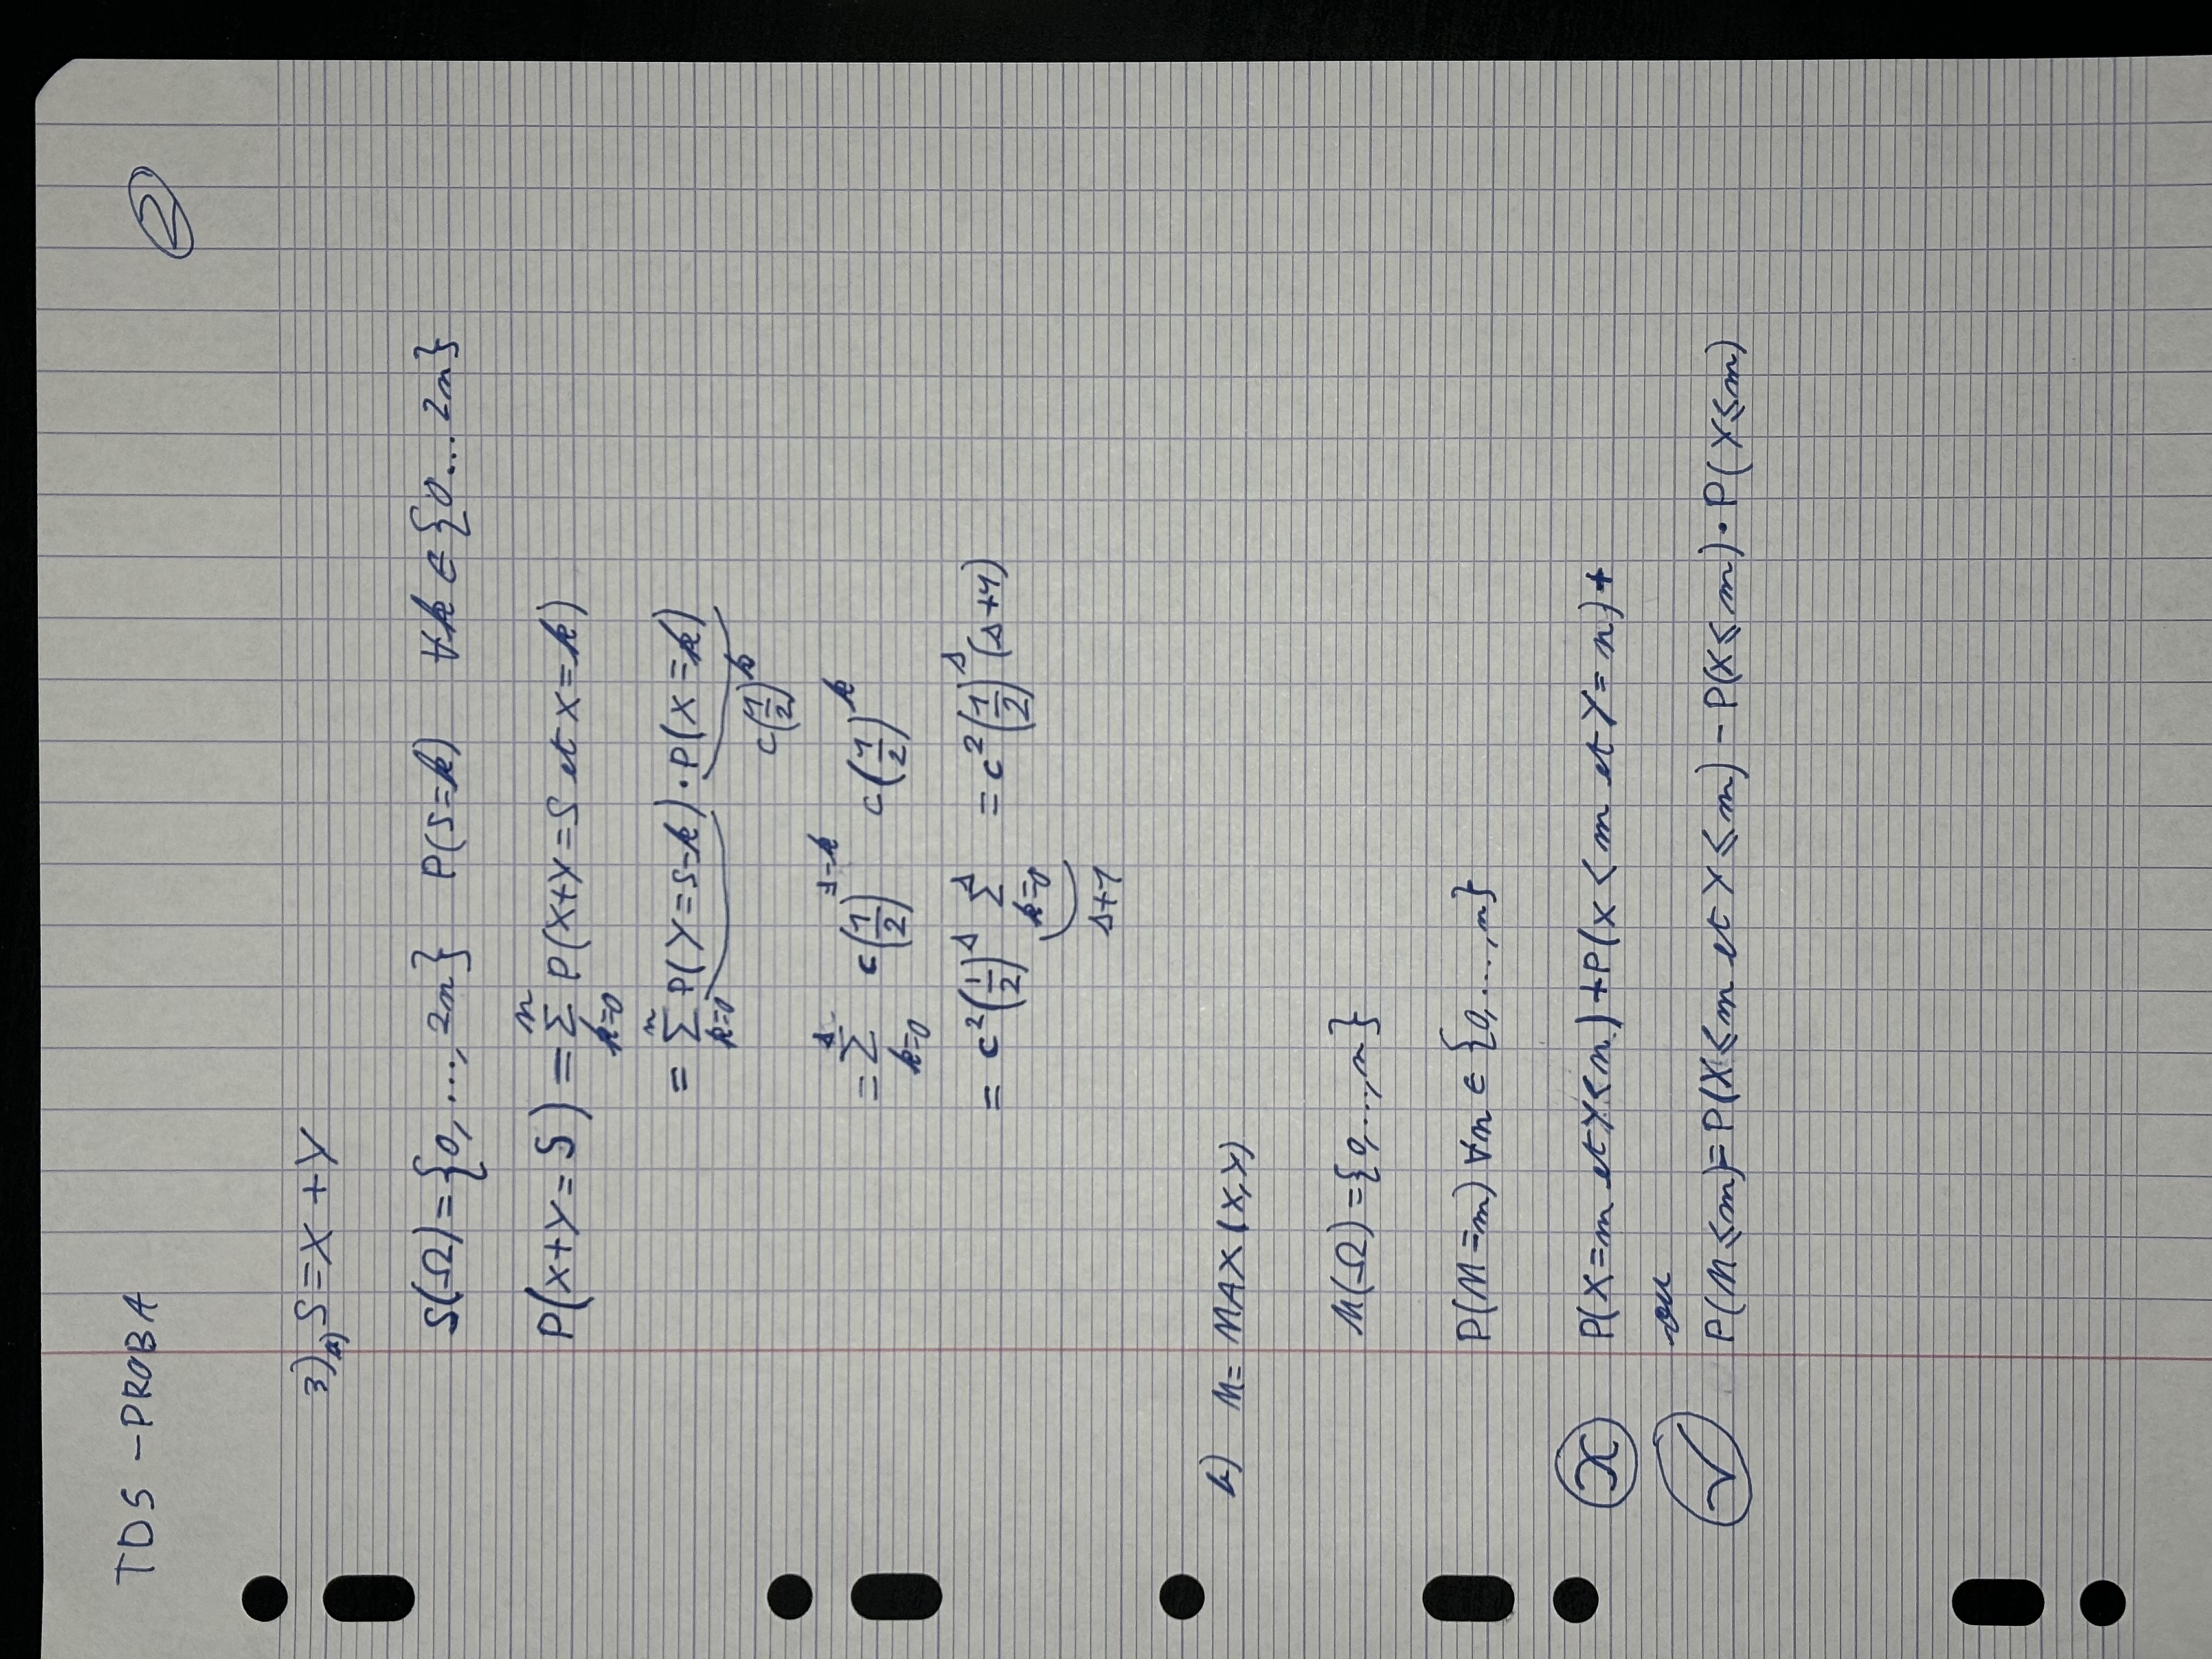 TD5 - PROBA
2
3) a) S = X + Y
S(Ω) = {0, ..., 2n} P(S=k) ∀k ∈ {0 ... 2n}
P(X+Y = S) = ∑_{k=0}^{n} P(X+Y = S et X = k)
= ∑_{k=0}^{n} P(Y = s-k) · P(X = k)
c(1/2)^k
= ∑_{k=0}^{s} c(1/2)^{s-k} c(1/2)^k
= c²(1/2)^s ∑_{k=0}^{s} = c²(1/2)^s (s+1)
s+1
b) M = MAX(X,Y)
M(Ω) = {0, ..., n}
P(M=m) ∀n ∈ {0, ..., n}
x P(X=m et Y<n) + P(X<m et Y=n) +
ou
✓ P(M≤m) = P(X≤m et Y≤m) - P(X≤m) · P(Y≤m)